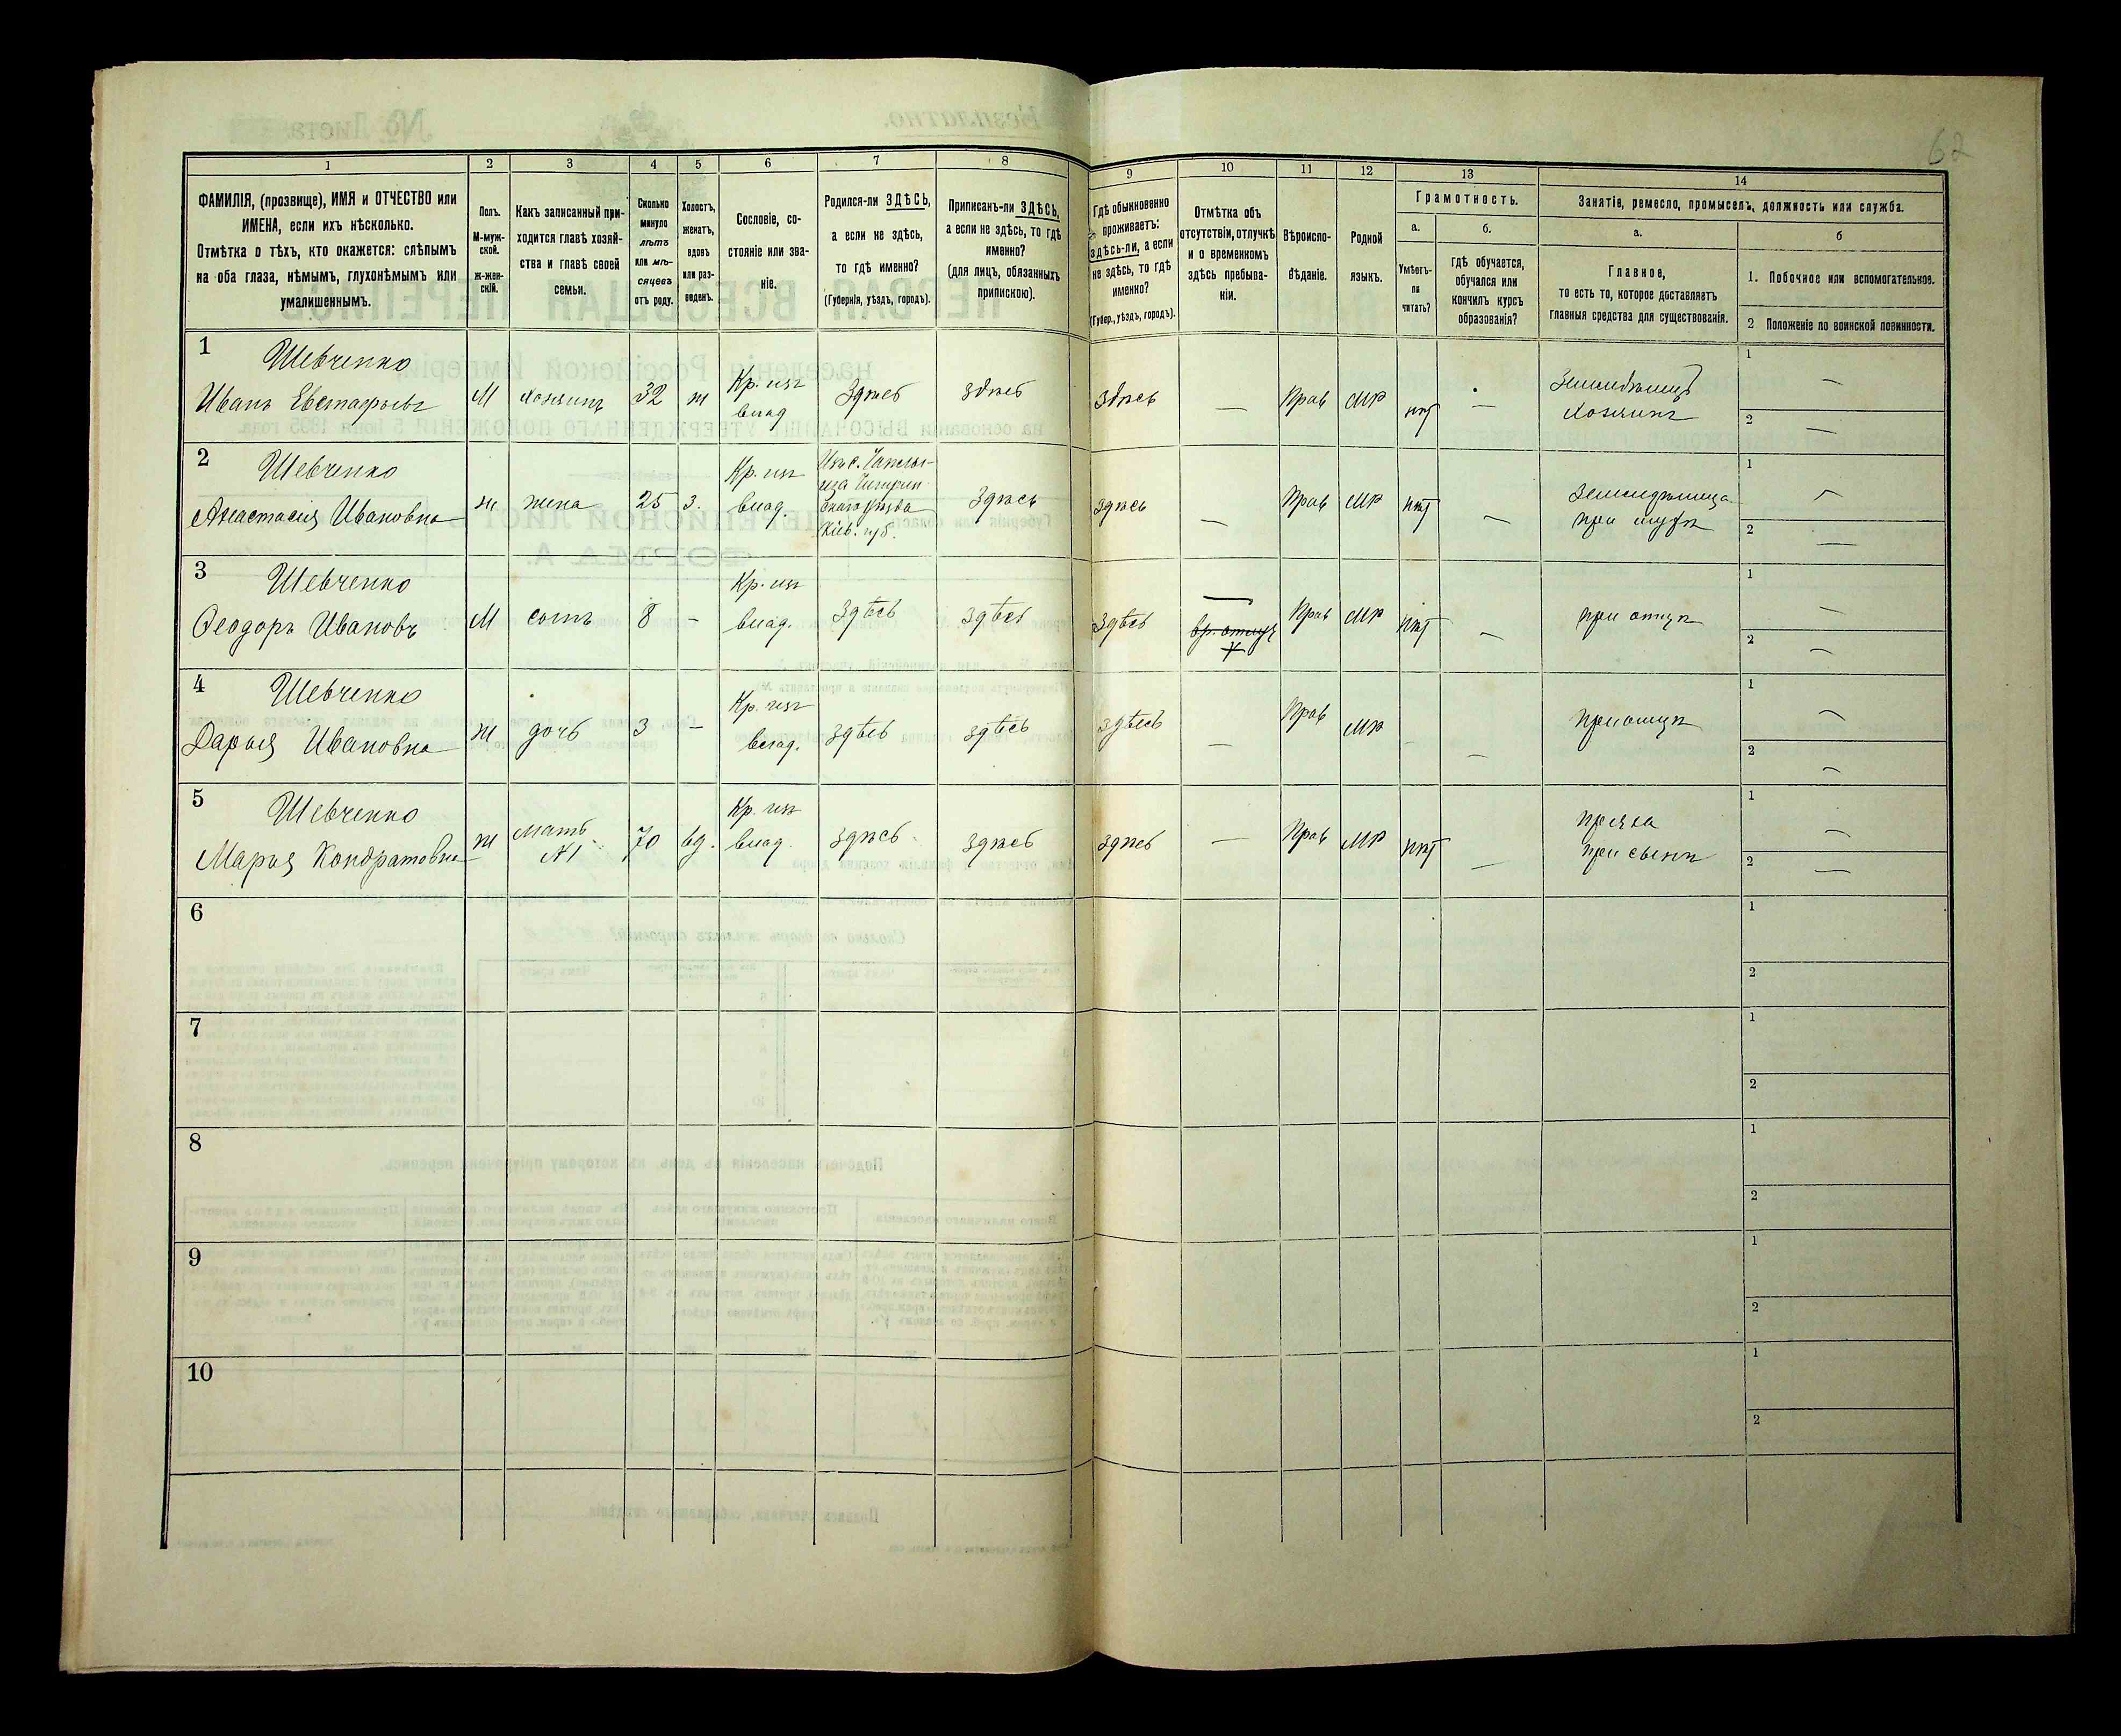 62
1 2 3 4 5 6 7 8 9 10 11 12 13 14
ФАМИЛІЯ, (прозвище), ИМЯ и ОТЧЕСТВО или
ИМЕНА, если ихъ нѣсколько.
Отмѣтка о тѣхъ, кто окажется: слѣпымъ
на оба глаза, нѣмымъ, глухонѣмымъ или
умалишеннымъ.
Полъ.
М-муж-
ской.
ж-жен-
скій.
Какъ записанный при-
ходится главѣ хозяй-
ства и главѣ своей
семьи.
Сколько
минуло
лѣтъ
или мѣ-
сяцевъ
отъ роду.
Холостъ,
женатъ,
вдовъ
или раз-
веденъ.
Сословіе, со-
стояніе или зва-
ніе.
Родился-ли ЗДѢСЬ,
а если не здѣсь,
то гдѣ именно?
(Губернія, уѣздъ, городъ).
Приписанъ-ли ЗДѢСЬ,
а если не здѣсь, то гдѣ
именно?
(для лицъ, обязанныхъ
припискою).
Гдѣ обыкновенно
проживаетъ:
здѣсь-ли, а если
не здѣсь, то гдѣ
именно?
(Губер., уѣздъ, городъ).
Отмѣтка объ
отсутствіи, отлучкѣ
и о временномъ
здѣсь пребыва-
ніи.
Вѣроиспо-
вѣданіе.
Родной
языкъ.
Грамотность.
а.
Умѣетъ-
ли
читать?
б.
гдѣ обучается,
обучался или
кончилъ курсъ
образованія?
Занятіе, ремесло, промыселъ, должность или служба.
а.
Главное,
то есть то, которое доставляетъ
главныя средства для существованія.
б
1. Побочное или вспомогательное.
2 Положеніе по воинской повинности.
1 Шевченко
Иванъ Евстафьевъ М хозяинъ 32 ж Кр. изъ
влад Здѣсь здѣсь здѣсь — Прав МР нѣт — Земледѣлецъ
хозяинъ 1 — 2 —
2 Шевченко
Анастасія Ивановна ж жена 25 з. Кр. изъ
влад. Изъ с.
Чигрин
скаго уѣзда
Кіев. губ. Здѣсь здѣсь — Прав МР нѣт — Земледѣлица
при мужѣ 1 — 2 —
3 Шевченко
Ѳеодоръ Ивановъ М сынъ 8 - Кр. изъ
влад. Здѣсь здѣсь здѣсь — Прав МР нѣт — при отцѣ 1 — 2 —
4 Шевченко
Дарья Ивановна ж дочь 3 - Кр. изъ
влад. здѣсь здѣсь здѣсь — Прав МР - — при отцѣ 1 — 2 —
5 Шевченко
Марья Кондратовна ж мать
№1 70 вд. Кр. изъ
влад. здѣсь здѣсь здѣсь — Прав МР нѣт — пряха
при сынѣ 1 — 2 —
6 1
2
7 1
2
8 1
2
9 1
2
10 1
2